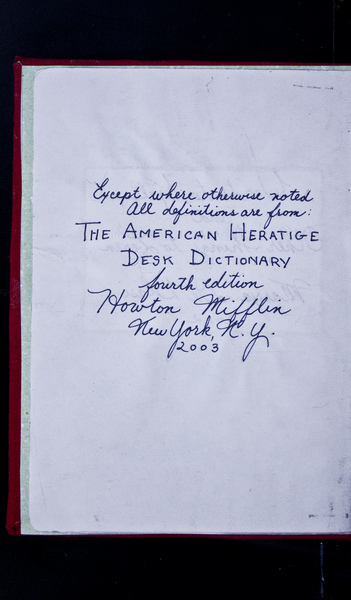 Except where otherwise noted
All definitions are from:
THE AMERICAN HERATIGE
DESK DICTIONARY
fourth edition
Howton Mifflin
New York, N.Y.
2003